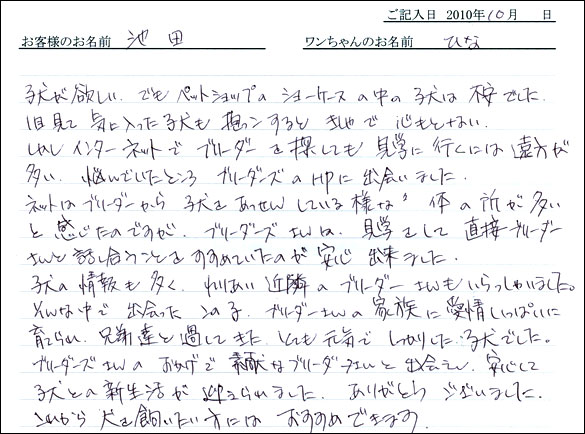 ご記入日 2010年10月 日
お客様のお名前 池田 ワンちゃんのお名前 ひな
子犬が欲しい、でもペットショップのショーケースの中の子犬は不安でした。
1日見て気に入った子犬も抱っコすると きゃしゃで 心もとない。
しかしインターネットでブリーダーを探しても見学に行くには遠方が
多い。悩んでいたところブリーダーズのHPに出会いました。
ネットはブリーダーから子犬をあっせんしている様な 体の所が多い
と感じたのですが、ブリーダーズさんは、見学をして直接ブリーダー
さんと話し合うことをすすめていたのが安心出来ました。
子犬の情報も多く、わりあい近隣のブリーダーさんもいらっしゃいました。
そんな中で出会ったこの子。ブリーダーさんの家族に愛情いっぱいに
育てられ、兄弟達と過してきた、とても元気でしっかりした子犬でした。
ブリーダーズさんのおかげで素敵なブリーダーさんと出会え、安心して
子犬との新生活が迎えられました。ありがとうございました。
これから犬を飼いたい方にはおすすめできます。